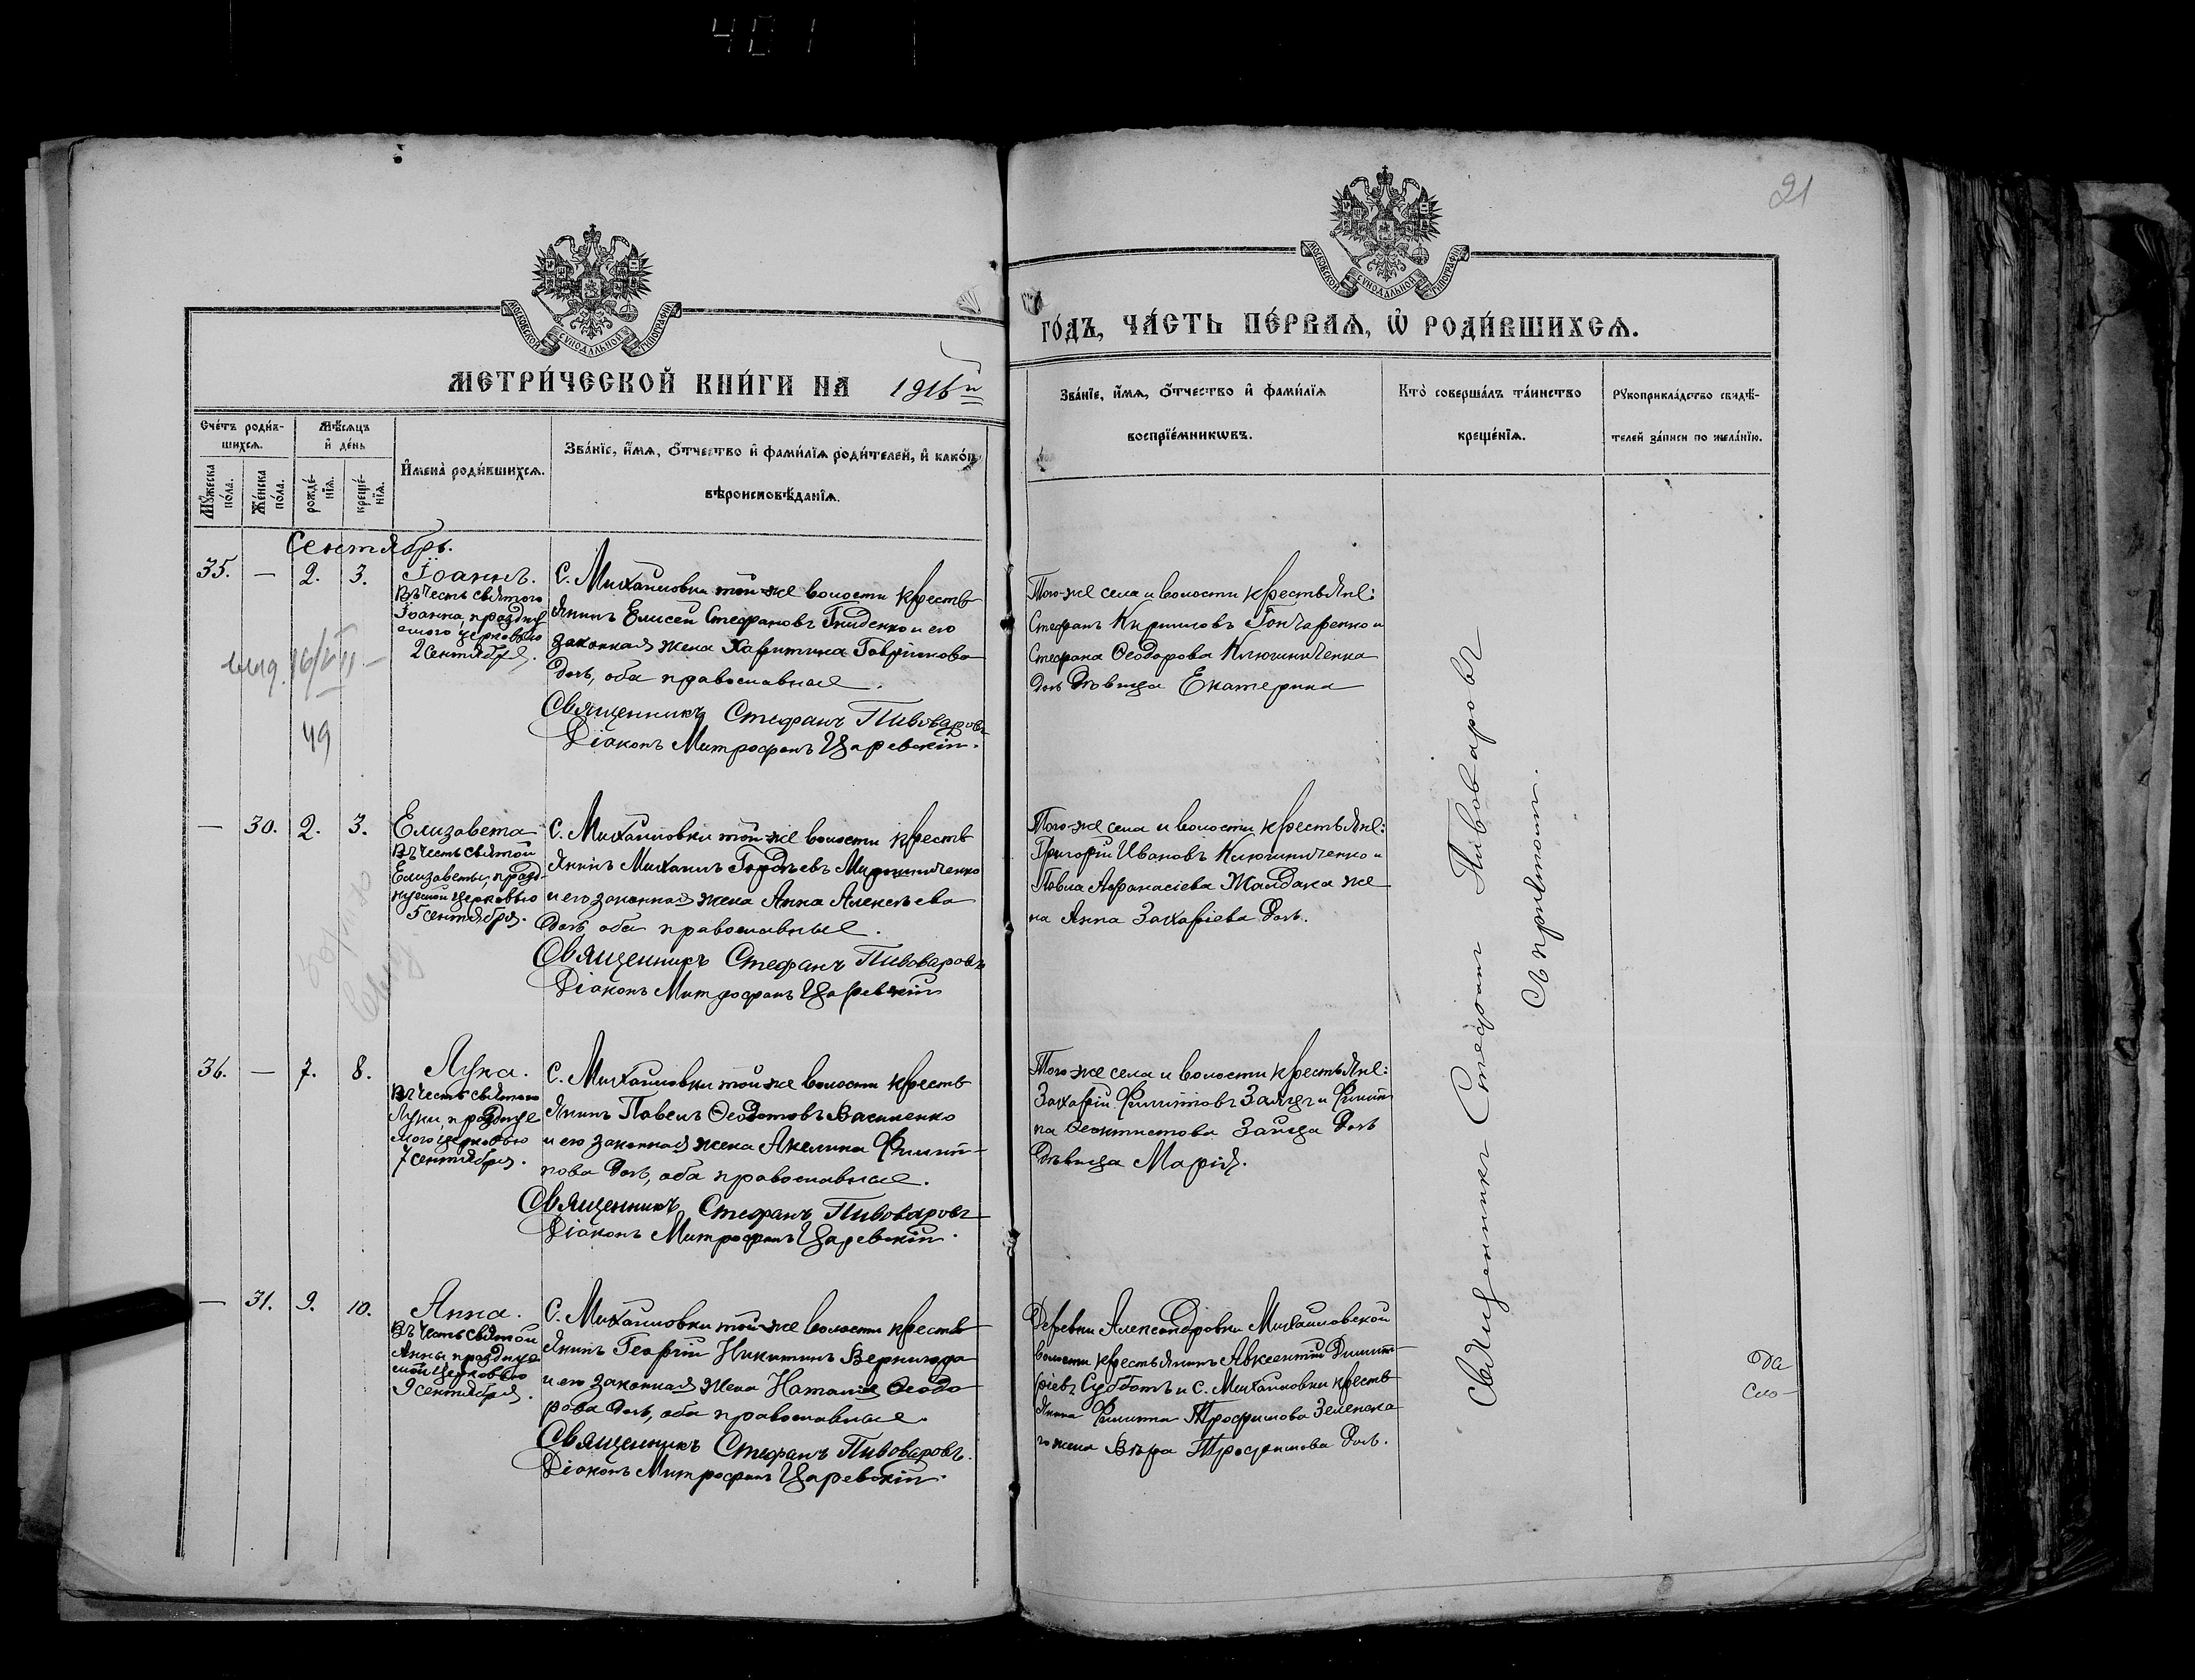 401
21
МОСКОВСКОЙ СѴНОДАЛЬНОЙ ТИПОГРАФІИ
МОСКОВСКОЙ СѴНОДАЛЬНОЙ ТИПОГРАФІИ
МЕТРИ́ЧЕСКОЙ КНИ́ГИ НА 1916й
ГО́ДЪ, ЧА́СТЬ ПЕ́РВАѦ, Ѡ҆ РОДИ́ВШИХСѦ.
Сче́тъ роди́в-
шихсѧ.
Мꙋ́жеска по́ла.
Же́нска по́ла.
Мѣ́сѧцъ и҆ де́нь
рожде́-нїѧ.
креще́-нїѧ.
И҆мена̀ роди́вшихсѧ.
Зва́нїе, и҆́мѧ, ѻ҆́тчество и҆ фами́лїѧ роди́телей, и҆ како́гѡ
вѣроисповѣ́данїѧ.
Зва́нїе, и҆́мѧ, ѻ҆́тчество и҆ фами́лїѧ
воспрїе́мникѡвъ.
Кто̀ соверша́лъ та́инство
креще́нїѧ.
Рꙋкоприкла́дство свидѣ́-
телей за́писи по жела́нїю.
Сентябрь.
35. — 2. 3.
Іоаннъ.
Въ честь святого
Іоанна, праздну
емого церковью
2 сентября.
С. Михайловки той-же волости кресть
янинъ Елисей Стефановъ Гниденко и его
законная жена Харитина Гаврилова
доч, оба православные.
Священникъ Стефанъ Пивоваровъ
Діаконъ Митрофанъ Царевскій.
Того-же села и волости крестьяне:
Стефанъ Кирилловъ Гончаренко и
Стефана Ѳеодорова Ключниченка
дочь дѣвица Екатерина
49
— 30. 2. 3.
Елизавета
Въ честь святой
Елизаветы, празд-
нуемой церковью
5 сентября.
С. Михайловки той-же волости кресть
янинъ Михаилъ
и его законная жена Анна Алексѣева
доч, оба православные.
Священникъ Стефанъ Пивоваровъ
Діаконъ Митрофанъ Царевскій
Того-же села и волости крестьяне:
Григорій Ивановъ Ключниченко и
Павла Аѳанасіева Жалдака же
на Анна Захаріева доч.
36. — 7. 8.
Лука.
Въ честь святого
Луки, празднуе
мого церковью
7 сентября.
С. Михайловки той же волости кресть
янинъ Павелъ Ѳеодотовъ Василенко
и его законная жена Акелина Филип-
пова доч, оба православные.
Священникъ Стефанъ Пивоваровъ
Діаконъ Митрофанъ Царевскій.
Того же села и волости крестьяне:
Захарій Филиповъ Заяцъ и Филип
па Ѳеоктистова Зайца дочь
дѣвица Марія.
— 31. 9. 10.
Анна.
Въ честь святой
Анны празднуе
мой церковью
9 сентября.
С. Михайловки той-же волости кресть
янинъ Георгій Никитинъ Вернигора
и его законная жена Наталія Ѳеодо
рова доч, оба православные.
Священникъ Стефанъ Пивоваровъ.
Діаконъ Митрофанъ Царевскій.
Деревни Александровки Михайловской
волости крестьянинъ Авксентій Димит-
ріевъ Субботъ и С. Михайловки кресть
янина Филиппа Трофимова Зеленска
го жена Вѣра Трофимова доч.
Священникъ Стефанъ Пивоваровъ
Съ причтомъ.